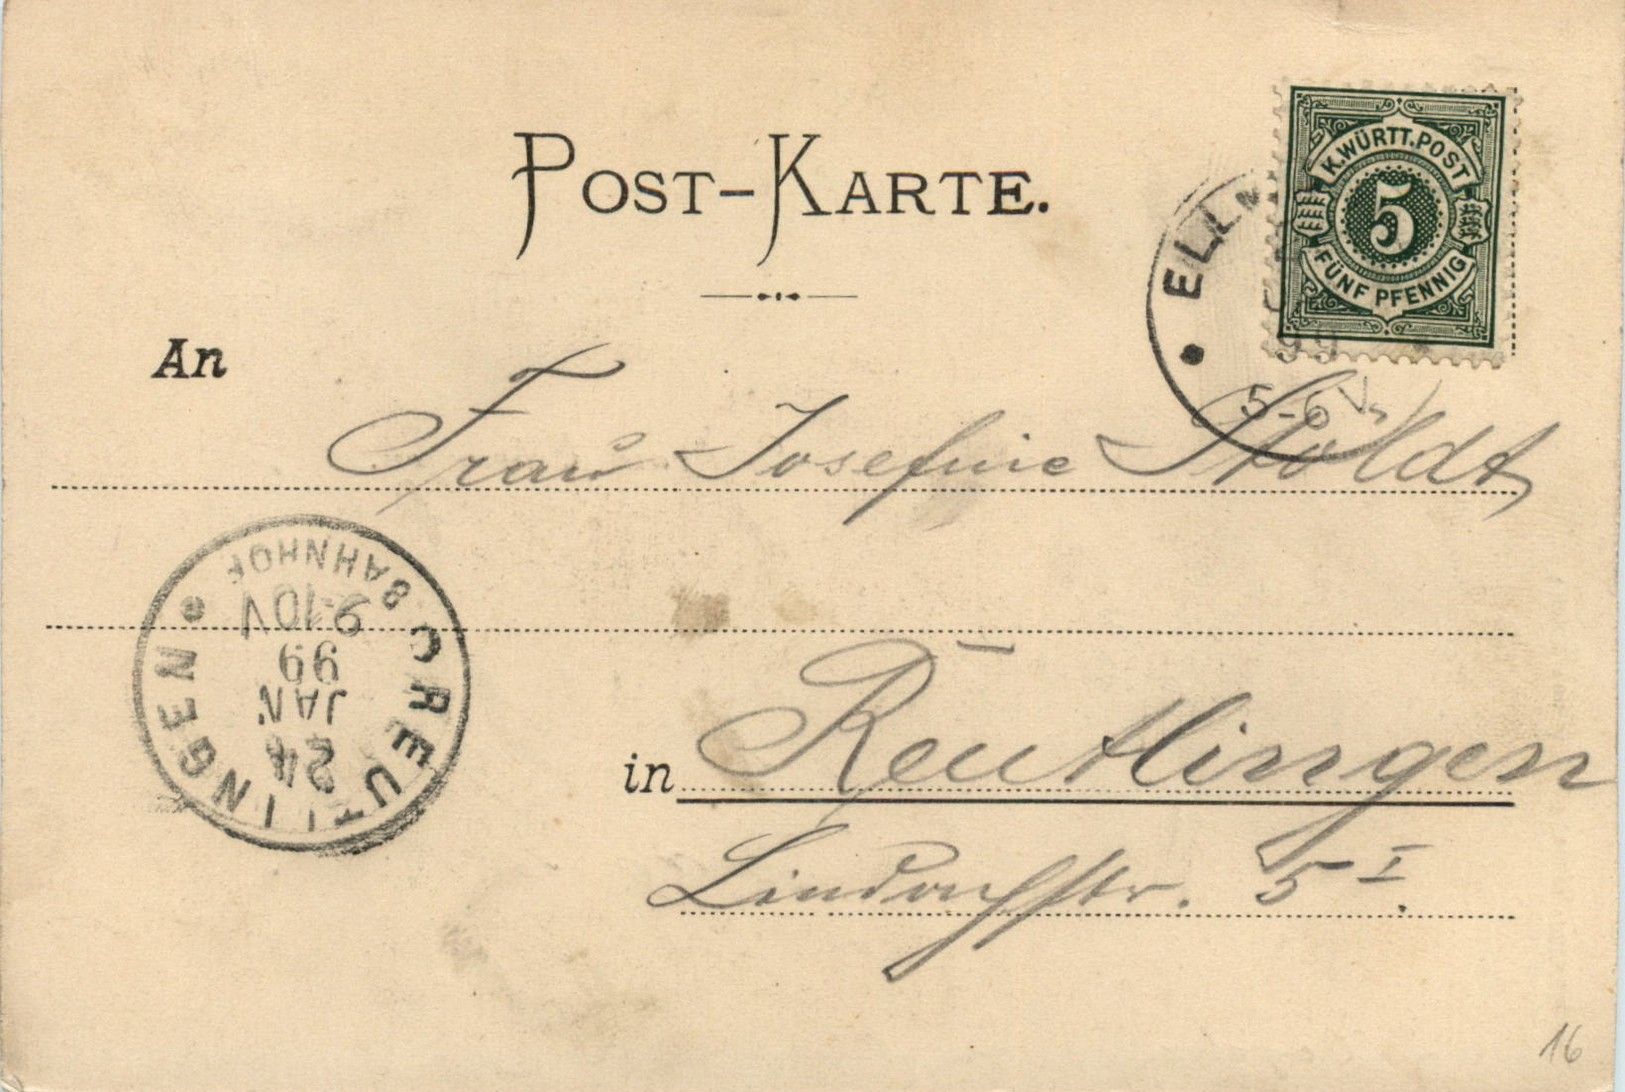 POST-KARTE.
K. WÜRTT. POST
5
FÜNF PFENNIG
ELLW
99
5-6 V
An
Frau Josefine Stoldt
REUTLINGEN
24
JAN
99
9-10V
BAHNHOF
in Reutlingen
5 I.
16